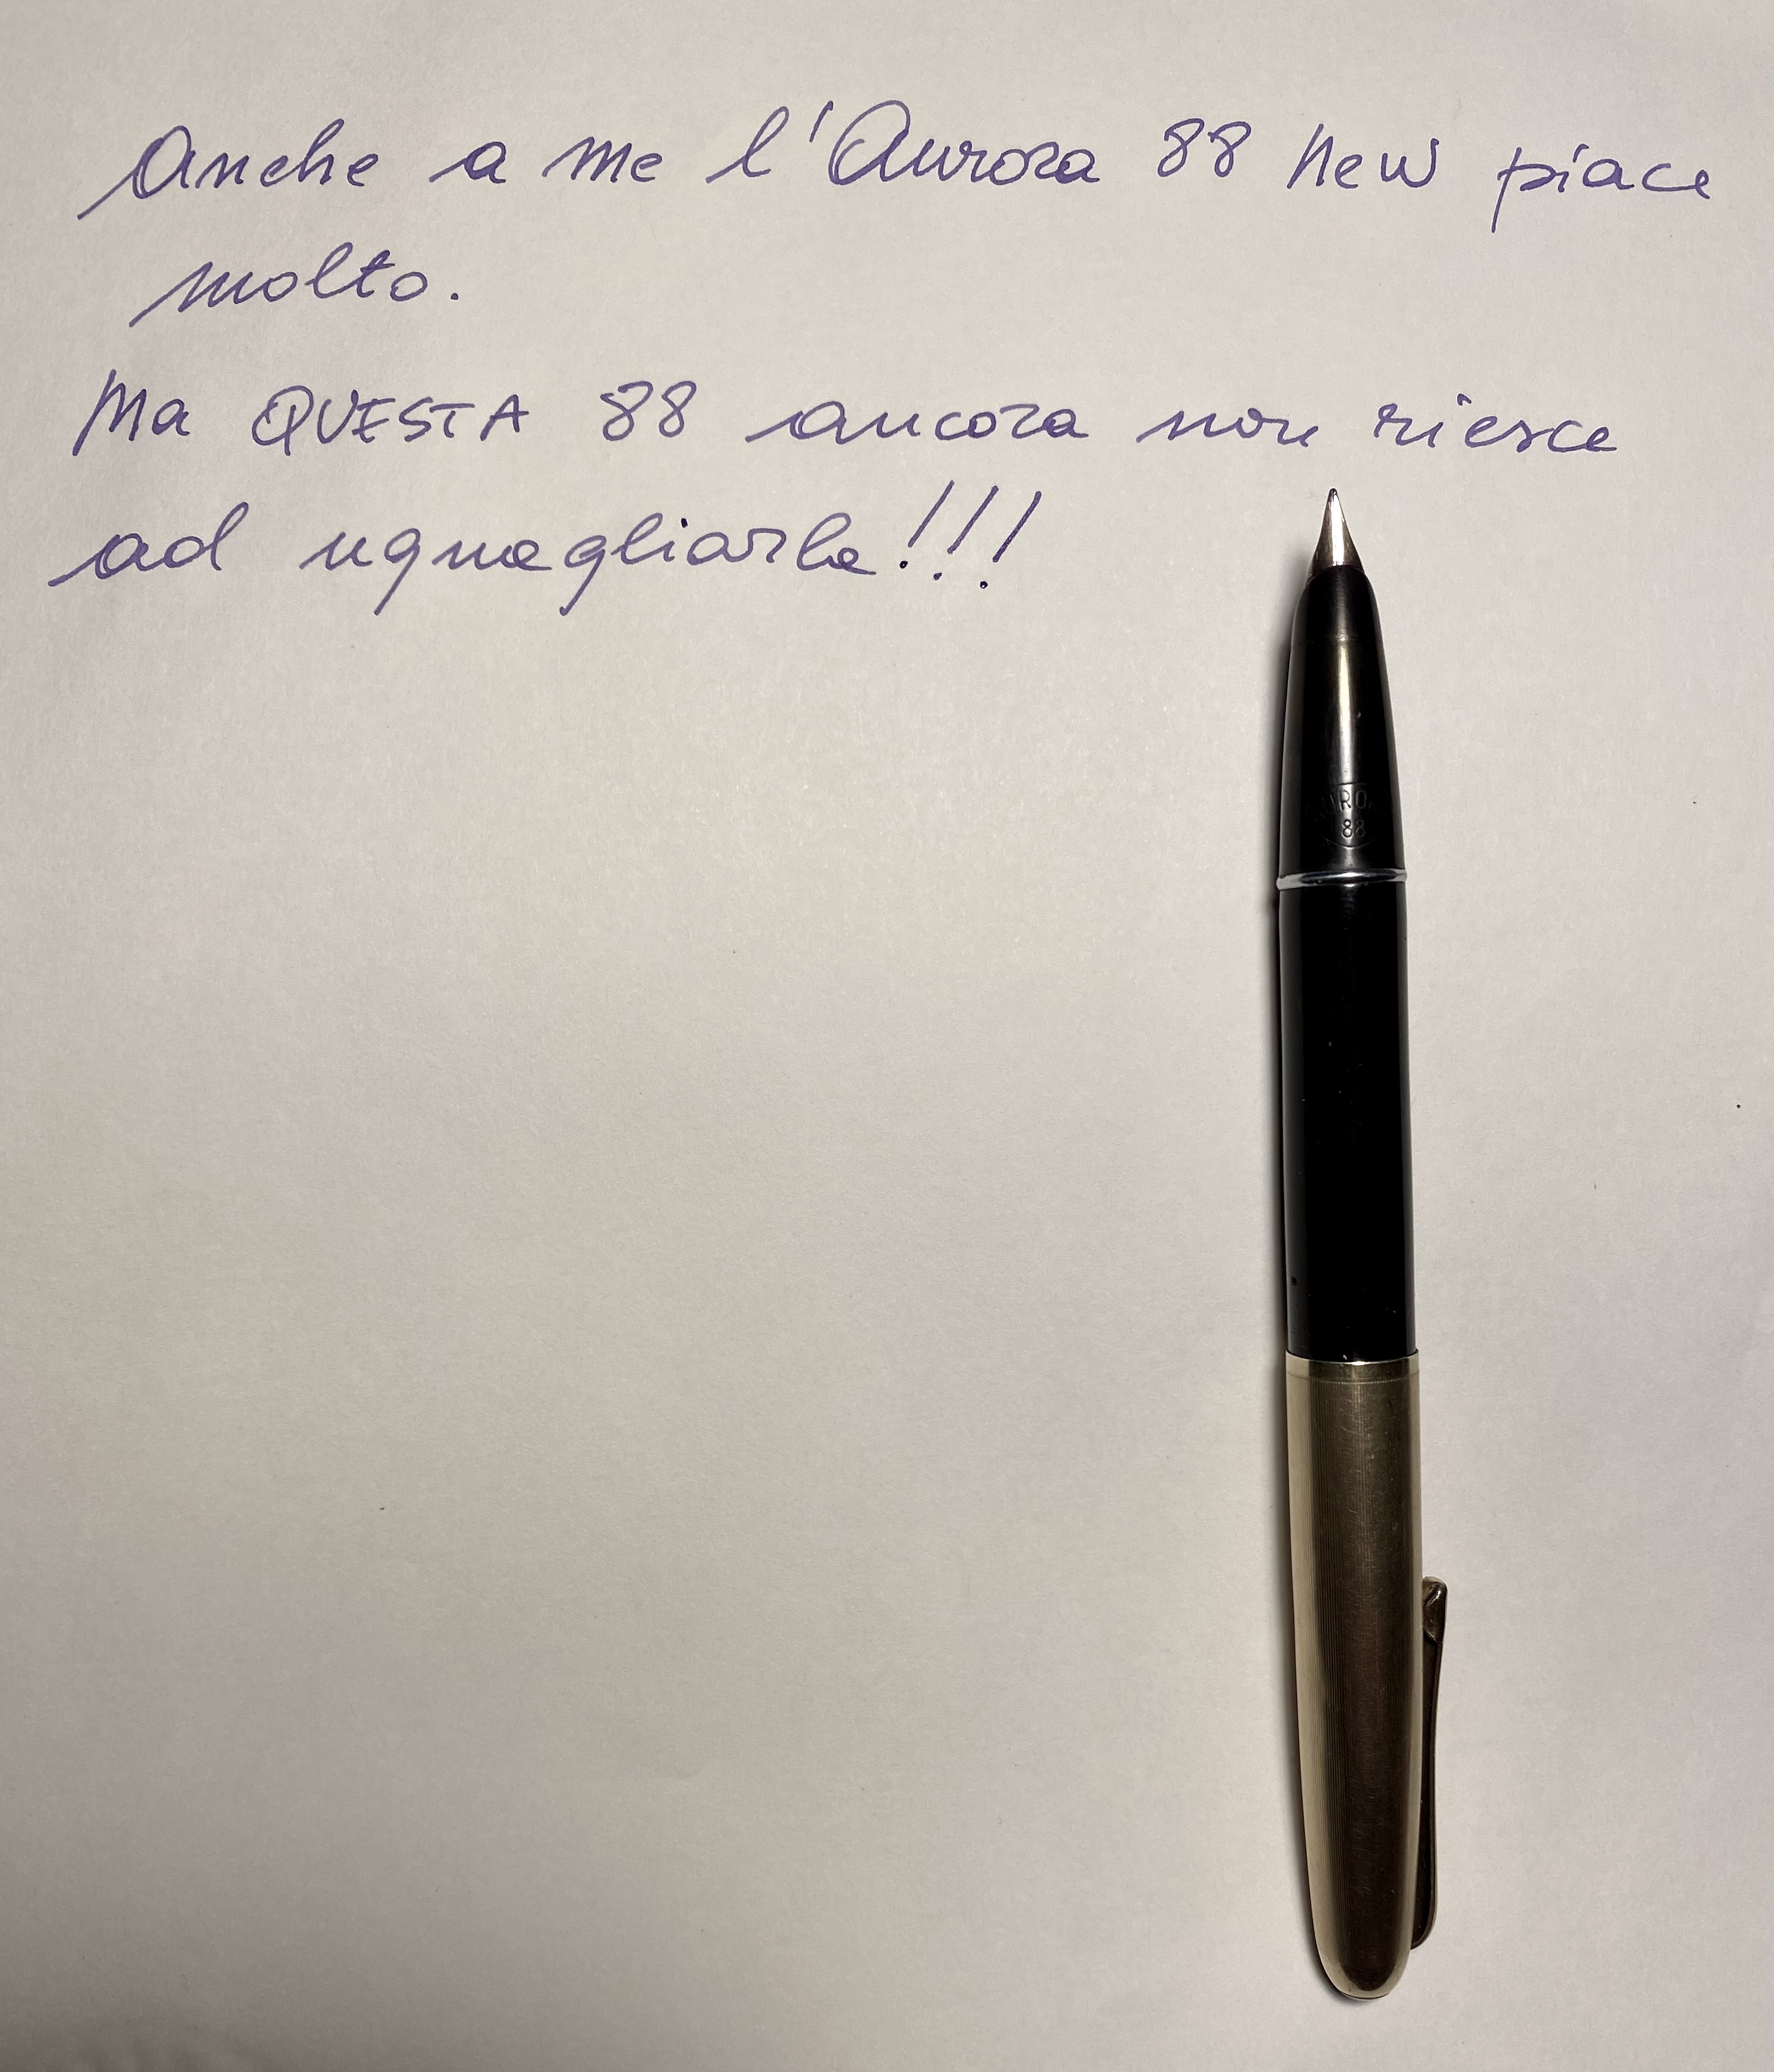 Anche a me l'Aurora 88 New piace
molto.
Ma QUESTA 88 ancora non riesce
ad uguagliarla!!!
88